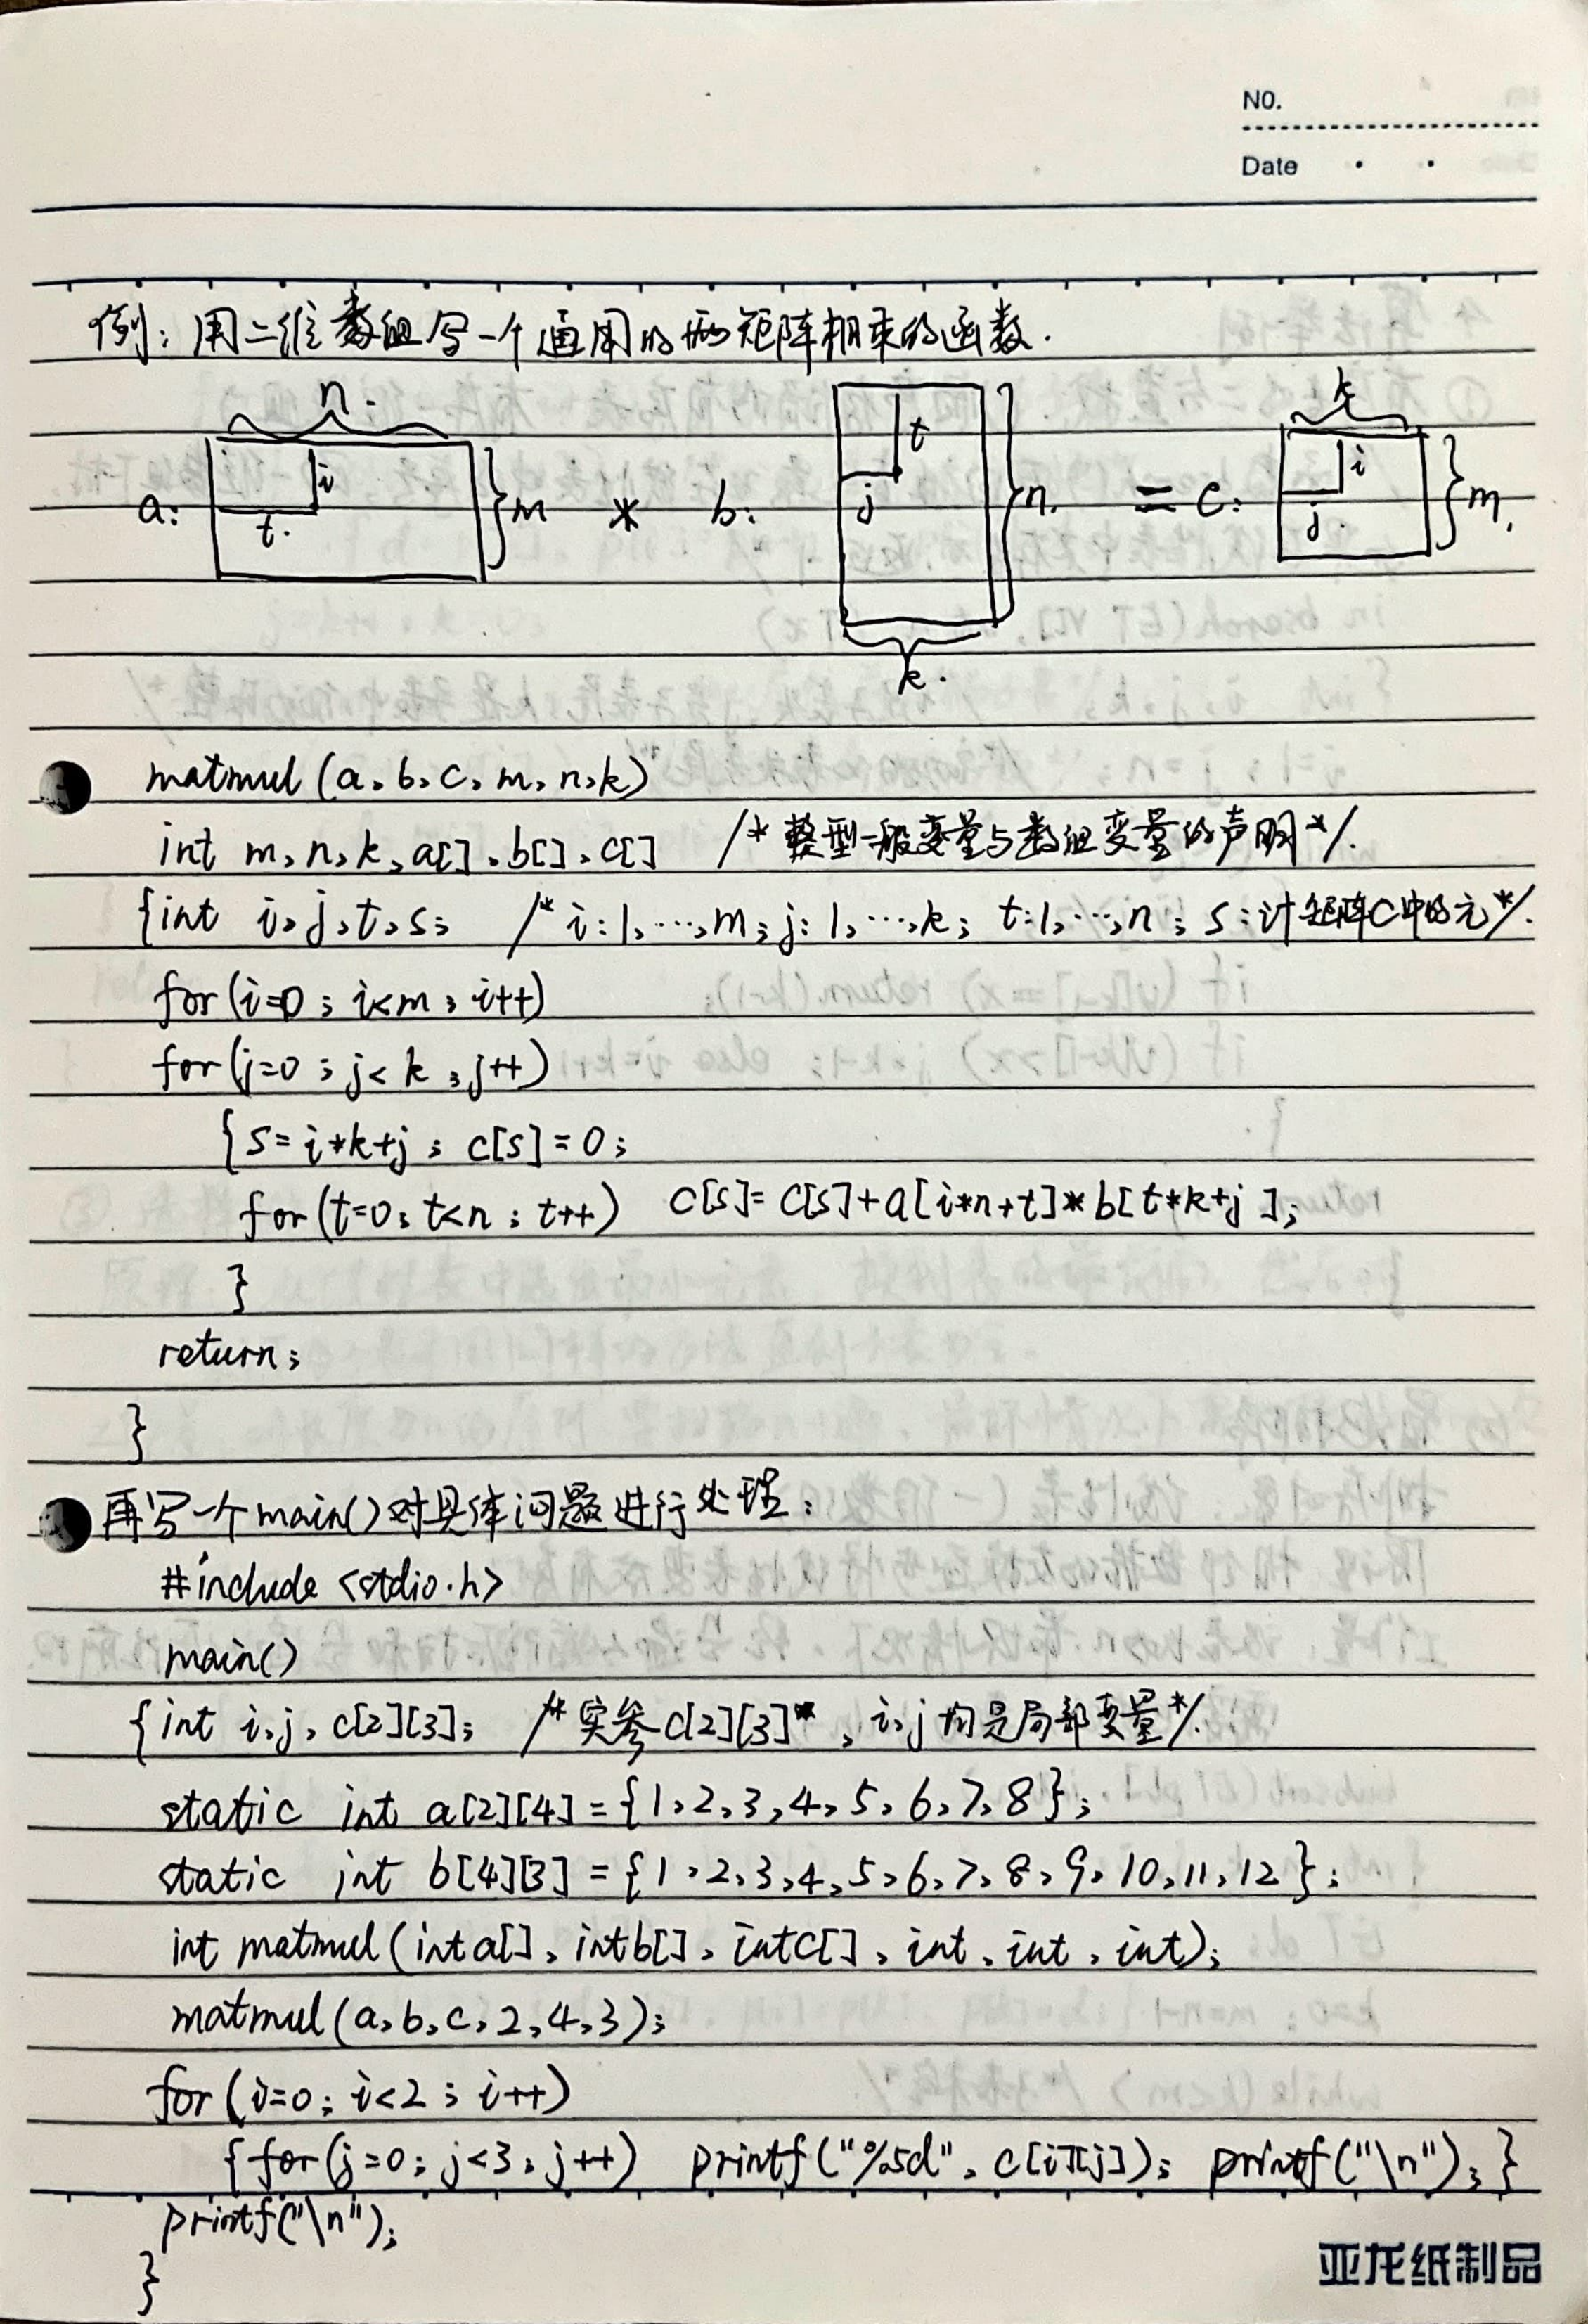 NO.
Date
例：用二维数组写一个通用的两矩阵相乘的函数.
n.
a: i t. }m * b: t j }n. = c: k i j. }m.
k.
matmul (a, b, c, m, n, k)
int m, n, k, a[], b[], c[] /* 整型一般变量与数组变量的声明*/.
{int i, j, t, s; /* i:1,…,m; j:1,…,k; t:1,…,n; s:计矩阵C中的元*/.
for (i=0; i<m; i++)
for (j=0; j<k; j++)
{s=i*k+j; c[s]=0;
for (t=0; t<n; t++) c[s]=c[s]+a[i*n+t]*b[t*k+j];
}
return;
}
再写一个main()对具体问题进行处理:
#include <stdio.h>
main()
{int i, j, c[2][3]; /* 实参c[2][3]*, i, j均是局部变量*/.
static int a[2][4]={1,2,3,4,5,6,7,8};
static int b[4][3]={1,2,3,4,5,6,7,8,9,10,11,12};
int matmul (int a[], int b[], int c[], int, int, int);
matmul (a, b, c, 2, 4, 3);
for (i=0; i<2; i++)
{for (j=0; j<3; j++) printf("%5d", c[i][j]); printf("\n");}
printf("\n");
}
亚龙纸制品